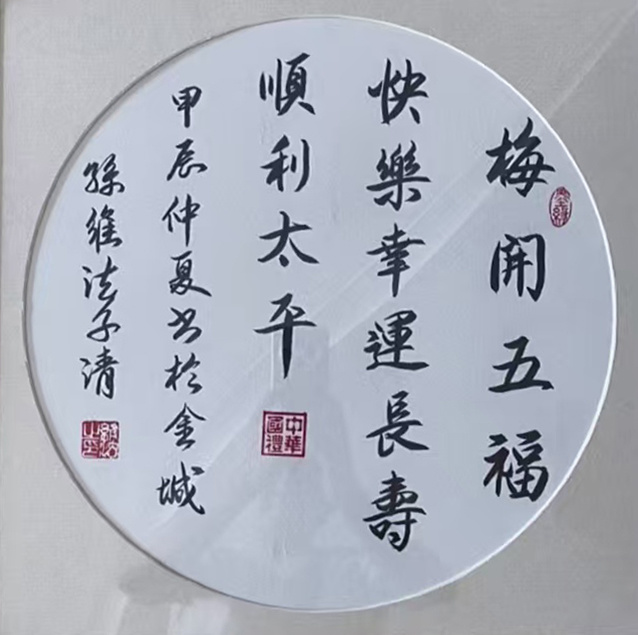 梅開五福
快樂幸運長壽
順利太平
甲辰仲夏书於金城
孫維法子清
中華國禮